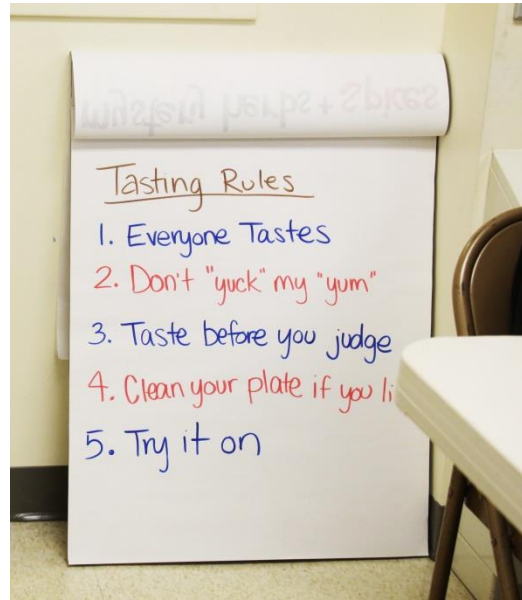 mystery herbs + spices
Tasting Rules
1. Everyone Tastes
2. Don't "yuck" my "yum"
3. Taste before you judge
4. Clean your plate if you li
5. Try it on